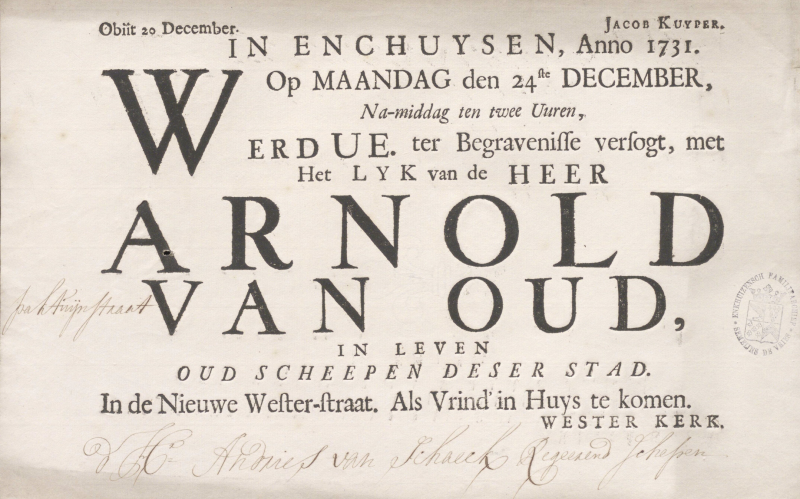 Obiit 20 December.
JACOB KUYPER.
IN ENCHUYSEN, Anno 1731.
Op MAANDAG den 24ste DECEMBER,
Na-middag ten twee Uuren,
WERDUE. ter Begravenisse versogt, met
Het LYK van de HEER
ARNOLD
VAN OUD,
IN LEVEN
OUD SCHEEPEN DESER STAD.
In de Nieuwe Wester-straat. Als Vrind in Huys te komen.
WESTER KERK.
d' Hr. Andries van Schaeck Regeerend Schepen